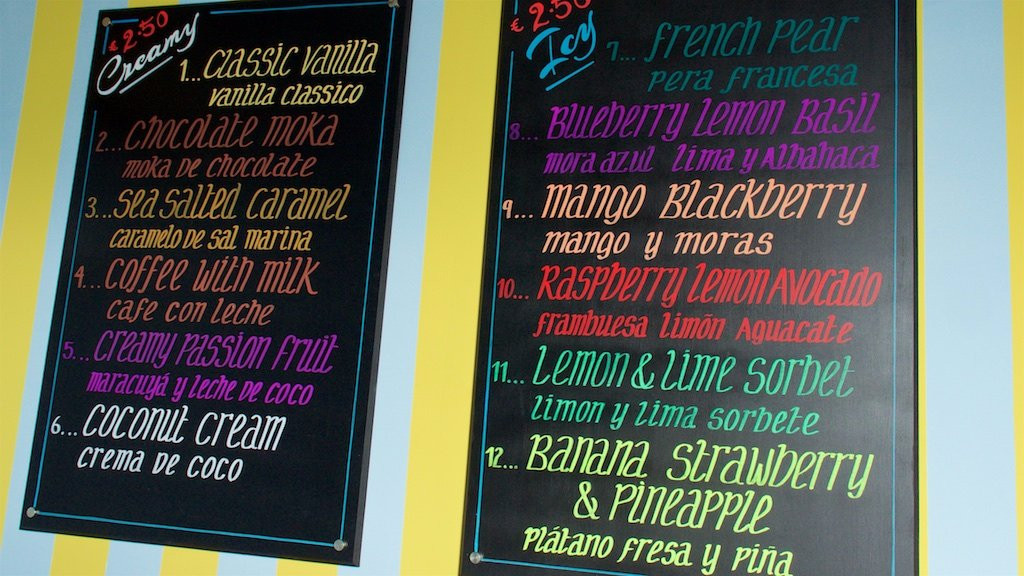 € 2.50
Creamy
1... Classic vanilla
vanilla classico
2... Chocolate moka
moka de chocolate
3... Sea Salted Caramel
caramelo de sal marina
4... Coffee with milk
cafe con leche
5... Creamy Passion Fruit
maracuyá y leche de coco
6... Coconut Cream
Crema de coco
€ 2.50
Icy
7... French Pear
Pera francesa
8... Blueberry Lemon Basil
mora azul lima y Albahaca
9... Mango Blackberry
mango y moras
10... Raspberry Lemon Avocado
frambuesa limón Aguacate
11... Lemon & Lime Sorbet
Limon y Lima sorbete
12... Banana Strawberry
& Pineapple
plátano fresa y piña